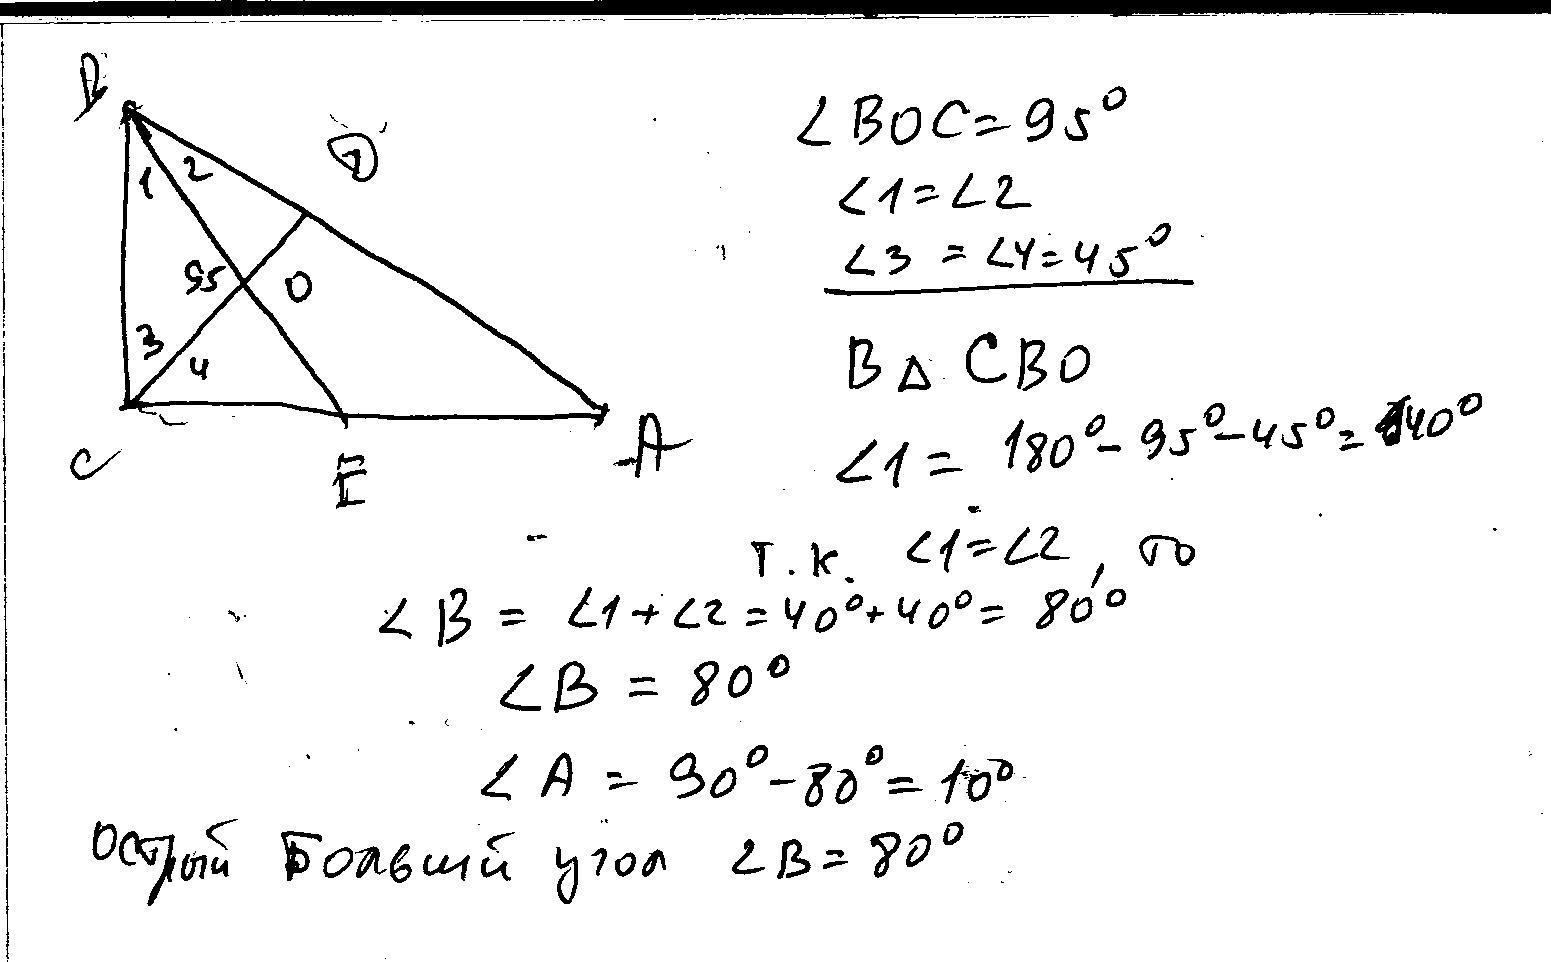 B
D
1 2
95 O
3
4
C
E
A
∠BOC=95°
∠1=∠2
∠3=∠4=45°
В △ CBO
∠1= 180°-95°-45°=40°
т.к. ∠1=∠2, то
∠B = ∠1+∠2=40°+40°= 80°
∠B = 80°
∠A = 90°-80°= 10°
острый большый угол ∠B=80°